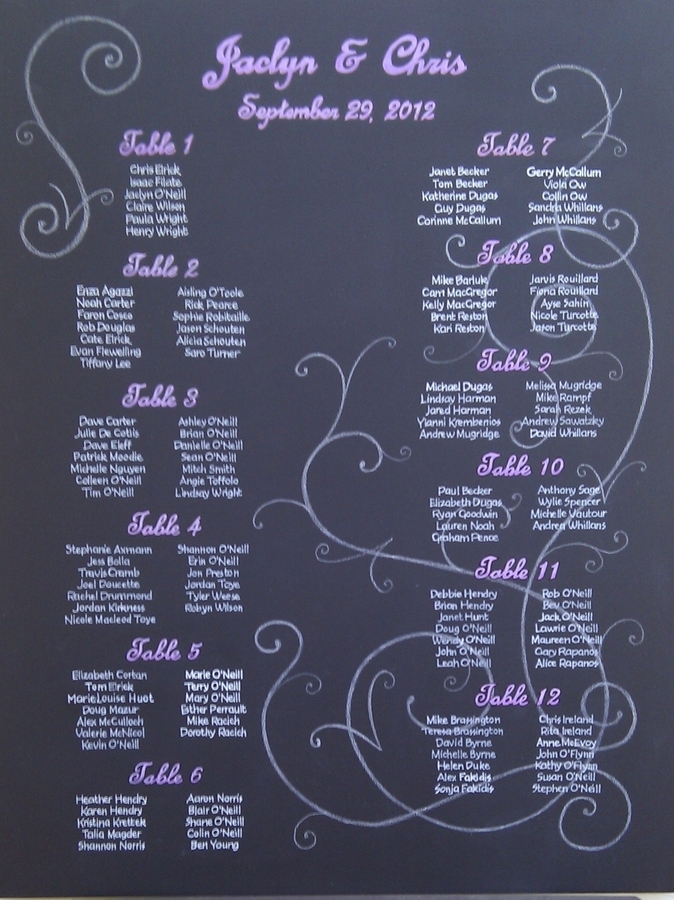 Jaclyn & Chris
September 29, 2012
Table 1
Chris Elrick
Isaac Filate
Jaclyn O'Neill
Claire Wilson
Paula Wright
Henry Wright
Table 2
Enza Agazzi
Noah Carter
Faron Cosco
Rob Douglas
Cate Elrick
Evan Flewelling
Tiffany Lee
Aisling O'Toole
Rick Pearce
Sophie Robitaille
Jason Schouten
Alicia Schouten
Sara Turner
Table 3
Dave Carter
Julie De Cotis
Dave Eleff
Patrick Moodie
Michelle Nguyen
Colleen O'Neill
Tim O'Neill
Ashley O'Neill
Brian O'Neill
Danielle O'Neill
Sean O'Neill
Mitch Smith
Angie Toffolo
Lindsay Wright
Table 4
Stephanie Axmann
Jess Bolla
Travis Cramb
Joel Doucette
Rachel Drummond
Jordan Kirkness
Nicole Macleod Taye
Shannon O'Neill
Erin O'Neill
Jon Preston
Jordan Taye
Tyler Weese
Robyn Wilson
Table 5
Elizabeth Cortan
Tom Elrick
Marie Louise Huot
Doug Mazur
Alex McCulloch
Valerie McNicol
Kevin O'Neill
Marie O'Neill
Terry O'Neill
Mary O'Neill
Esther Perrault
Mike Racich
Dorothy Racich
Table 6
Heather Hendry
Karen Hendry
Kristina Krettek
Talia Magder
Shannon Norris
Aaron Norris
Blair O'Neill
Shane O'Neill
Colin O'Neill
Ben Young
Table 7
Janet Becker
Tom Becker
Katherine Dugas
Guy Dugas
Corinne McCallum
Gerry McCallum
Viola Ow
Collin Ow
Sandra Whillans
John Whillans
Table 8
Mike Barluk
Cam MacGregor
Kelly MacGregor
Brent Reston
Kari Reston
Jarvis Rouillard
Fiona Rouillard
Ayse Sahin
Nicole Turcotte
Jason Turcotte
Table 9
Michael Dugas
Lindsay Harman
Jared Harman
Yianni Krembenios
Andrew Mugridge
Melissa Mugridge
Mike Rampf
Sarah Rezek
Andrew Sawatzky
David Whillans
Table 10
Paul Becker
Elizabeth Dugas
Ryan Goodwin
Lauren Noah
Graham Pence
Anthony Sage
Wylie Spencer
Michelle Vautour
Andrea Whillans
Table 11
Debbie Hendry
Brian Hendry
Janet Hunt
Doug O'Neill
Wendy O'Neill
John O'Neill
Leah O'Neill
Rob O'Neill
Bev O'Neill
Jack O'Neill
Lawrie O'Neill
Maureen O'Neill
Gary Rapanos
Alice Rapanos
Table 12
Mike Brassington
Teresa Brassington
David Byrne
Michelle Byrne
Helen Duke
Alex Fakidis
Sonja Fakidis
Chris Ireland
Rita Ireland
Anne McEvoy
John O'Flynn
Kathy O'Flynn
Susan O'Neill
Stephen O'Neill